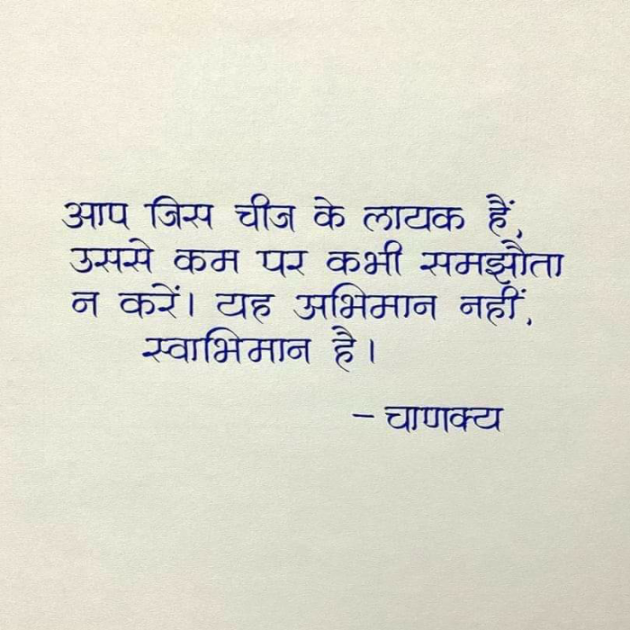 आप जिस चीज के लायक हैं,
उससे कम पर कभी समझौता
न करें। यह अभिमान नहीं,
स्वाभिमान है।
– चाणक्य